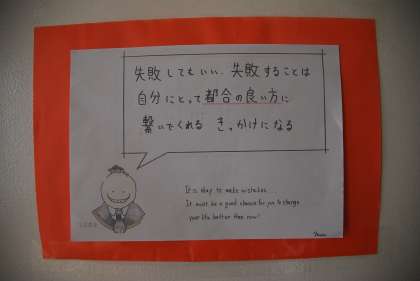 失敗してもいい、失敗することは
自分にとって都合の良い方に
繋いでくれる きっかけになる
It is okay to make mistakes...
It must be a good chance for you to change
your life better than now!